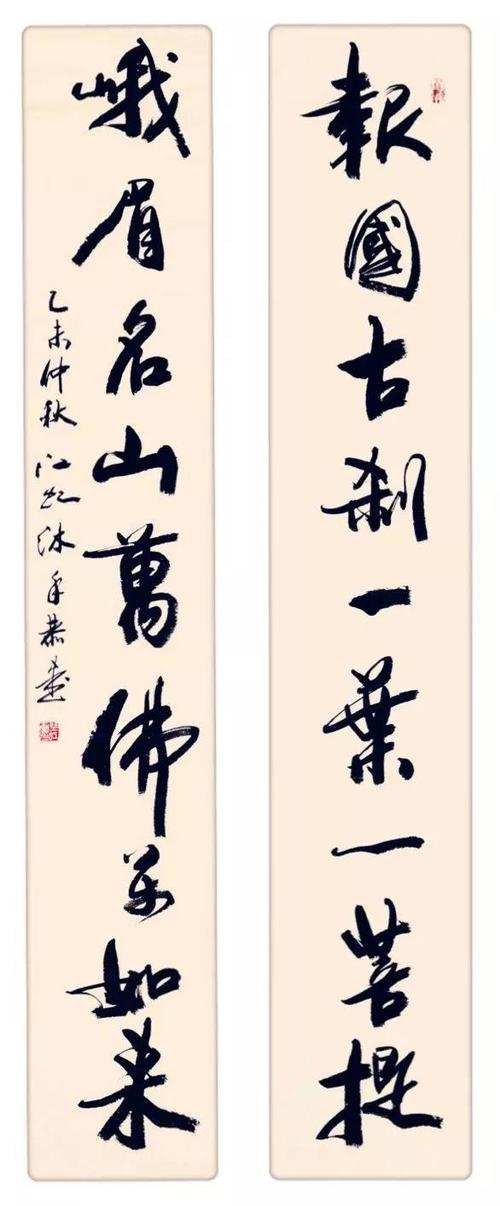 報國古刹一葉一菩提
峨眉名山萬佛万如来
乙未仲秋 江 沐手恭書